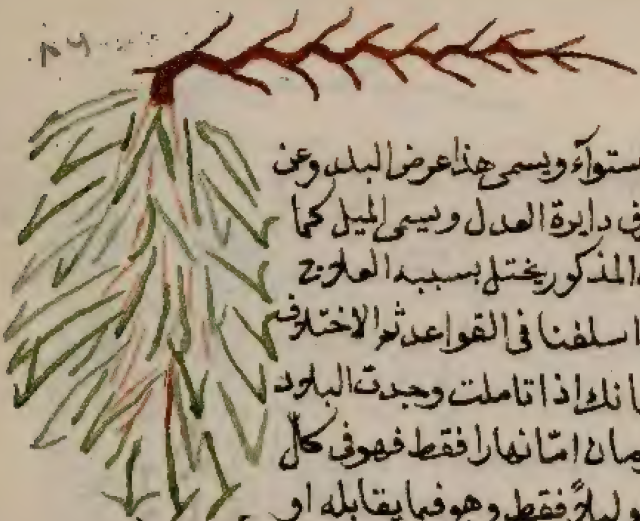 ستوآء ويسمى هذا عرض البلد وعن
دايرة العدل ويسمى الميل كما
المذكور يختل بسببه العلاج
اسلفنا فى القواعد ثم الاختلاف
انك اذا تاملت وجدت البلاد
مان امّا نهارا فقط فهو فى كل
ليلاً فقط وهو فيما يقابله او